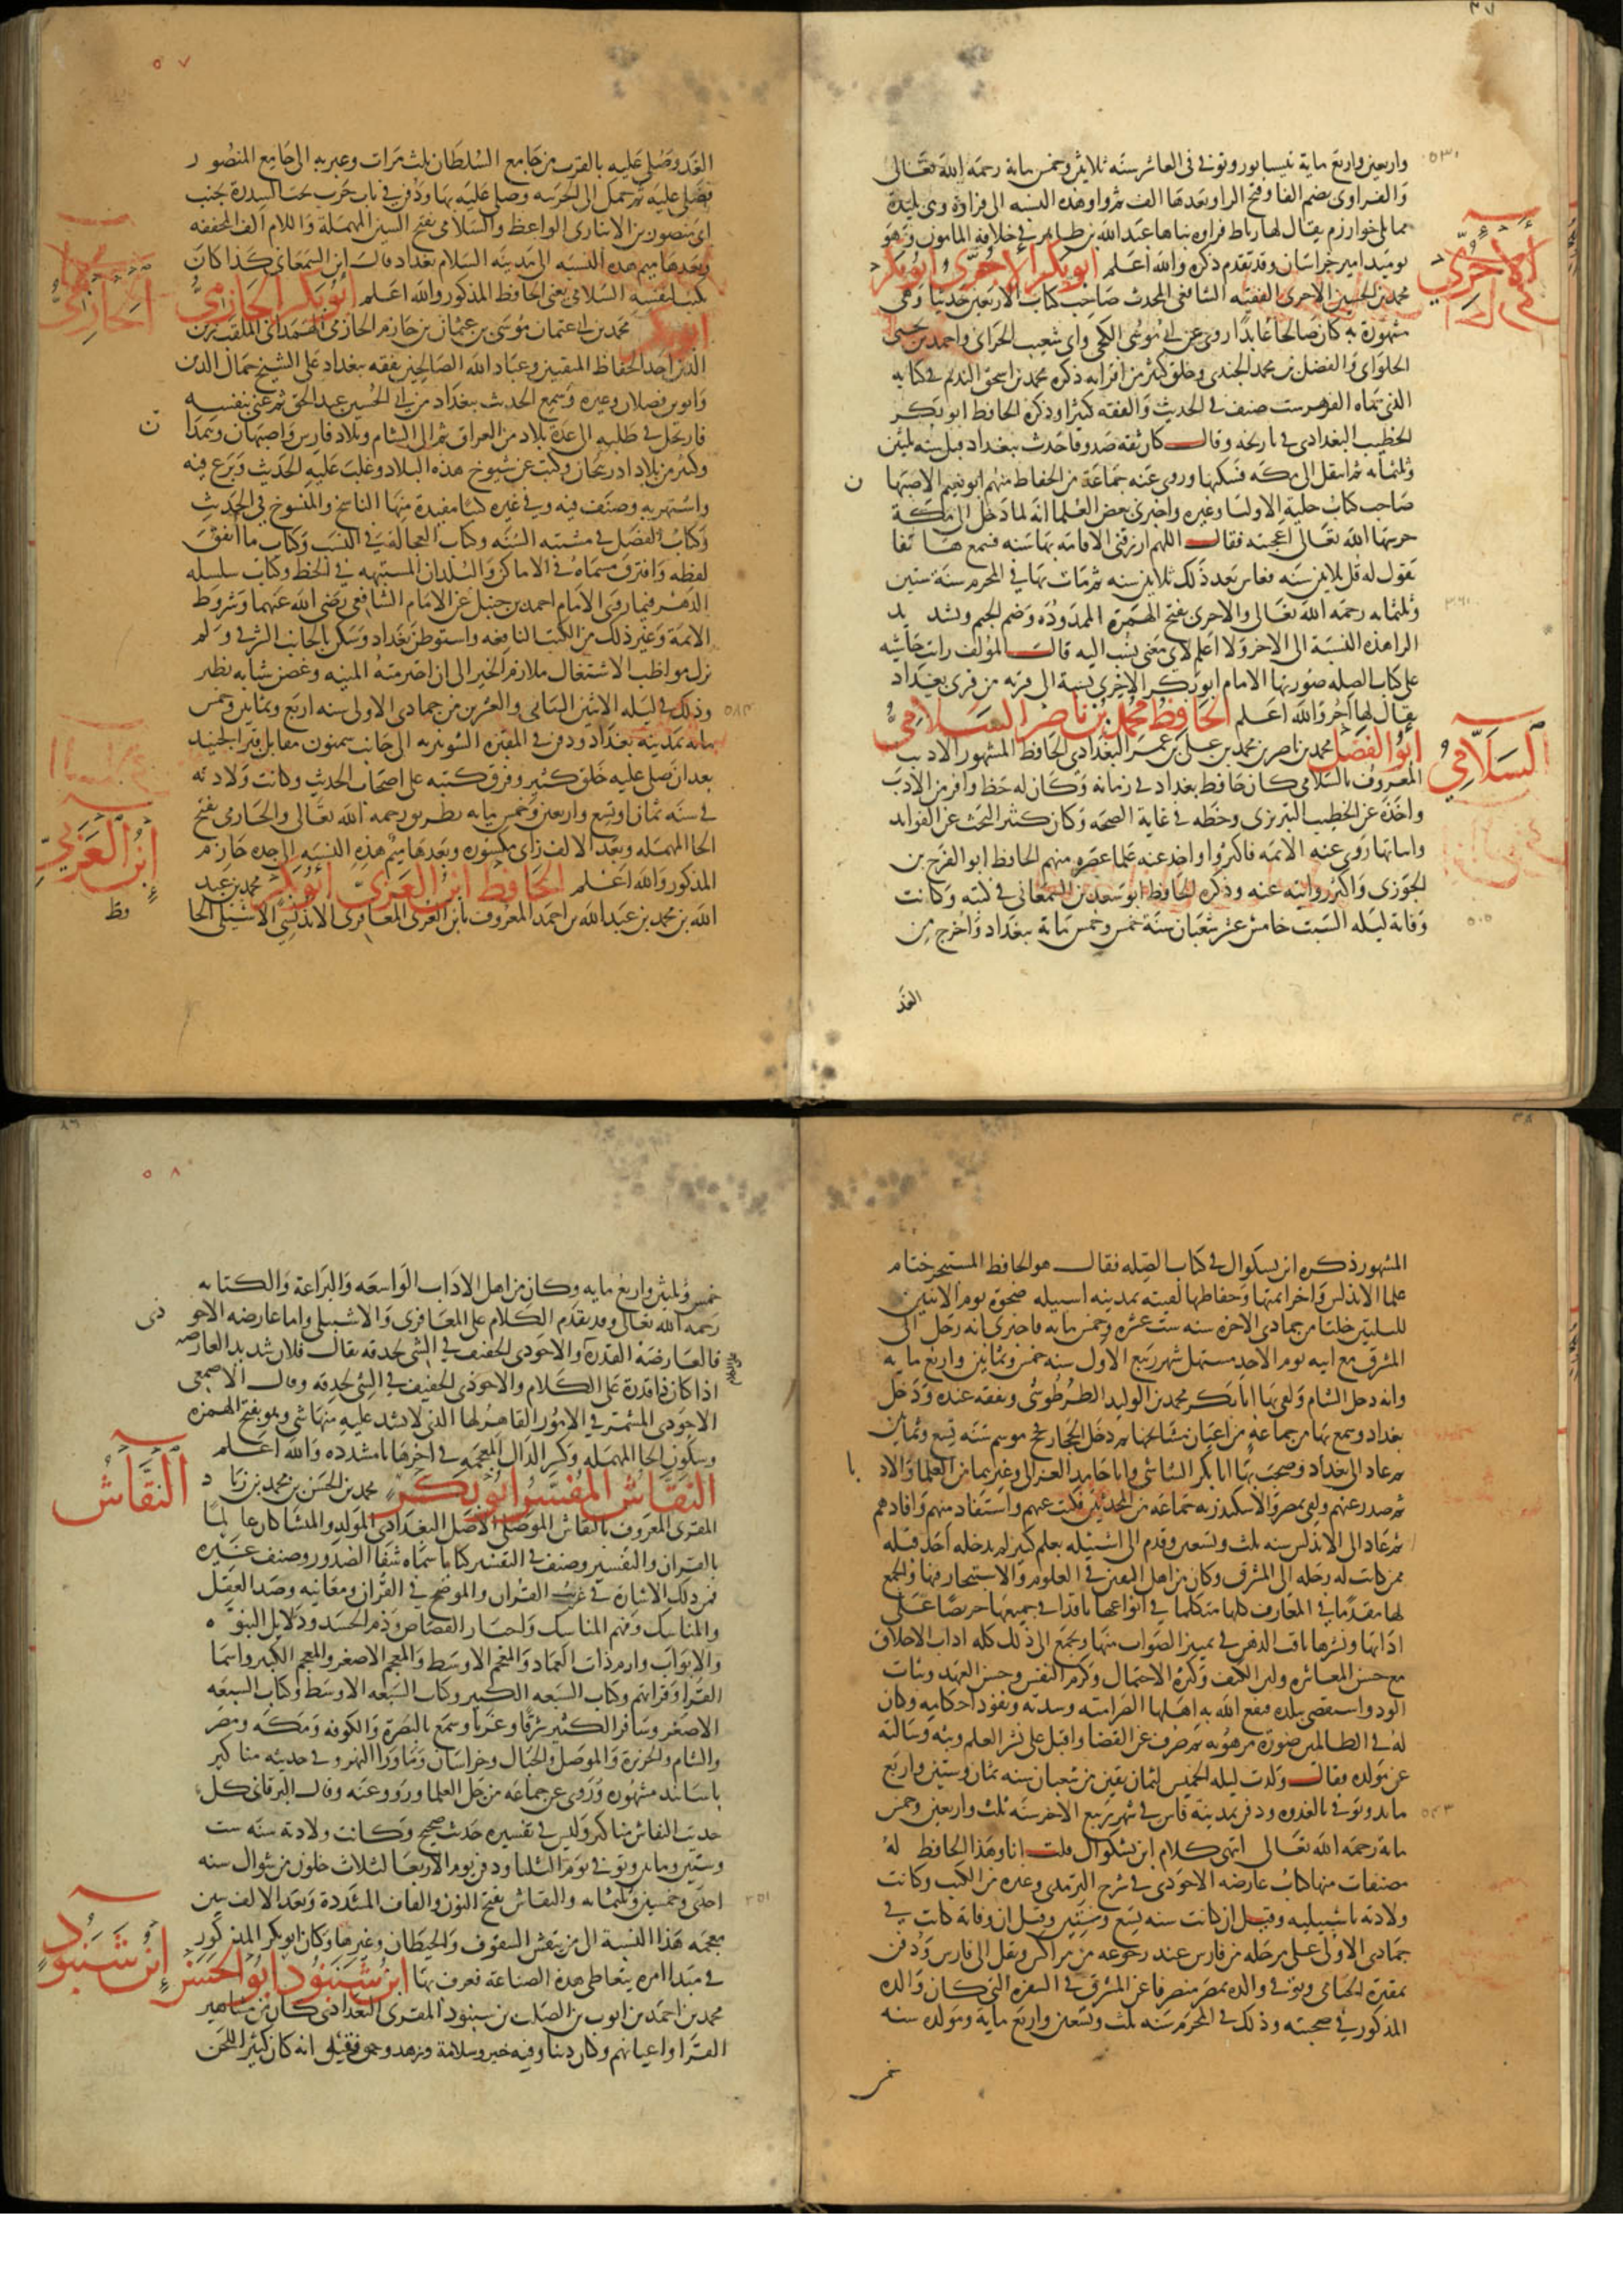 واربعين واربع ماية بنيسابور وتوفي في العاشر سنه ثلاثين وخمس مائة رحمه الله تعالى
والفراوى بضم الفا وفتح الراو بعدها الف ثم واو هذه النسبه الى فراوة وهى بليدة
مما يلي خوارزم يقال لها رباط فراوه بناها عبد الله بن طاهر في خلافة المامون وهو
يوميد امير خراسان وقد تقدم ذكره والله اعلم ابو بكر الاجري ابو بكر
الاجري
محمد بن الحسين الاجرى الفقيه الشافعى المحدث صاحب كتاب الاربعين حديثا وهى
مشهورة به كان صالحا عابدا روى عن ابى الكجى وابى شعيب الحراى واحمد بن يحيى
الحلواى والفضل بن محمد الجندى وخلق كثير من اقرانه ذكره محمد بن اسحق النديم في كتابه
الذى سماه الفهرست صنف في الحديث والفقه كثيرا وذكره الحافظ ابو بكر
الخطيب البغدادى في تاريخه وقال كان ثقه صدوقا حدث ببغداد قبل سنه ثلثين
وثلثمائه ثم انتقل الى مكه فسكنها وروى عنه جماعة من الحفاظ منهم ابو نعيم الاصبها
ن
صاحب كتاب حلية الاوليا وغيره واخبرنى بعض العلما انه لما دخل الى مكة
حرسها الله تعالى اعجبته فقال اللهم ارزقنى الاقامة بها سنه فسمع هاتفا
يقول له بل ثلاثين سنه فعاش بعد ذلك ثلاثين سنه ثم مات بها في المحرم سنة ستين
وثلثمايه رحمه الله تعالى والاجرى بفتح الهمزة الممدودة وضم الجيم وتشديد
الرا هذه النسبة الى الاجر ولا اعلم لاى معنى نسب اليه قال المؤلف رايت حاشيه
على كتاب الصله صورتها الامام ابو بكر الاجرى نسبة الى قرية من قرى بغداد
يقال لها اجر والله اعلم الحافظ محمد بن ناصر السلامي
ابو الفضل محمد بن ناصر بن محمد بن على بن عمر البغدادى الحافظ المشهور الاديب
السلامي
المعروف بالسلامى كان حافظ بغداد في زمانه وكان له حظ وافر من الادب
واخذه عن الخطيب التبريزى وخطه في غاية الصحة وكان كثير البحث عن الفوايد
واثباتها روى عنه الائمه فاكثروا واخذ عنه علما عصره منهم الحافظ ابو الفرج بن
الجوزى واكثر روايته عنه وذكره الحافظ ابو سعد بن السمعانى في كتبه وكانت
وفاته ليله السبت خامس عشر شعبان سنة خمس وخمس مائة ببغداد واخرج من
الغد
٥٧
الغد وصلى عليه بالقرب من جامع السلطان ثلث مرات وعبر به الى جامع المنصور
فصلى عليه ثم حمل الى الحربيه وصلى عليه بها ودفن في باب حرب تحت السدرة بجنب
ابى منصور بن الانبارى الواعظ والسلامى بفتح السين المهملة واللام الف المخففه
وبعدها ميم هذه النسبه الى مدينه السلام بغداد قال ابن السمعانى كذا كان
يكتب لنفسه السلامى يعنى الحافظ المذكور والله اعلم ابو بكر الحازمي
الحازمي
ابو بكر محمد بن ابى عثمان موسى بن عثمان بن حازم الحازمى الهمدانى الملقب زين
الدين احد الحفاظ المتقنين وعباد الله الصالحين تفقه ببغداد على الشيخ جمال الدين
واثق بن فضلان وغيره وسمع الحديث ببغداد من ابى الحسين عبد الحق ثم عنى بنفسه
فارتحل في طلبه الى عدة بلاد من العراق ثم الى الشام وبلاد فارس واصبهان وهمذا
ن
وكثير من بلاد اذربيجان وكتب عن شيوخ هذه البلاد وغلب عليه الحديث وبرع فيه
واشتهر به وصنف فيه وفى غيره كتبا مفيدة منها الناسخ والمنسوخ في الحديث
وكتاب الفصل في مشتبه النسبه وكتاب العجالة في النسب وكتاب ما اتفق
لفظه وافترق مسماه في الاماكن والبلدان المشتبهه في الخط وكتاب سلسله
الذهب فيما روى الامام احمد بن حنبل عن الامام الشافعى رضى الله عنهما وشروط
الائمة وغير ذلك من الكتب النافعه واستوطن بغداد وسكن بالجانب الشرقى ولم
يزل مواظب الاشتغال ملازم الخير الى ان اخترمته المنيه وغصن شبابه نضير
وذلك في ليله الاثنين الثانى والعشرين من جمادى الاولى سنه اربع وثمانين وخمس
مائه بمدينه بغداد ودفن في المقبره الشونيزيه الى جانب سمنون مقابل قبر الجنيد
بعد ان صلى عليه خلق كثير وفرق كتبه على اصحاب الحديث وكانت ولادته
في سنه ثمان او تسع واربعين وخمس مايه بطريق رحمه الله تعالى والحازمى بفتح
الحا المهمله وبعد الالف زاى مكسوره وبعدها ميم هذه النسبه الى جده حازم
المذكور والله اعلم الحافظ ابن العربي ابو بكر محمد بن عبد
ابن العربي
الله بن محمد بن عبد الله بن احمد المعروف بابن العربى المعافرى الاندلسى الاشبيلى الحا
فظ
٣٨
المشهور ذكره ابن بشكوال في كتاب الصله فقال هو الحافظ المستبحر ختام
علما الاندلس واخر ايمتها وحفاظها لقيته بمدينه اشبيليه ضحوة يوم الاثنين
لليلتين خلتا من جمادى الاخره سنه ست عشره وخمس مايه فاخبرنى انه رحل الى
المشرق مع ابيه يوم الاحد مستهل شهر ربيع الاول سنه خمس وثمانين واربع مايه
وانه دخل الشام ولقى بها ابا بكر محمد بن الوليد الطرطوشى وتفقه عنده ودخل
بغداد وسمع بها من جماعه من اعيان مشايخها ثم دخل الحجاز فحج موسم سنه تسع وثمانين
ثم عاد الى بغداد وصحب بها ابا بكر الشاشى وابا حامد الغزالى وغيرهما من العلما والاد
با
ثم صدر عنهم ولقى بمصر والاسكندريه جماعه من المحدثين فكتب عنهم واستفاد منهم وافادهم
ثم عاد الى الاندلس سنه ثلث وتسعين وقدم الى اشبيليه بعلم كثير لم يدخله احد قبله
ممن كانت له رحله الى المشرق وكان من اهل التفنن في العلوم والاستبحار فيها والجمع
لها مقدما في المعارف كلها متكلما في انواعها نافذا في جميعها حريصا على
ادائها ونشرها ثاقب الذهن في تمييز الصواب منها ويجمع الى ذلك كله اداب الاخلاق
مع حسن المعاشره ولين الكنف وكثرة الاحتمال وكرم النفس وحسن العهد وثبات
الود واستقضى ببلده فنفع الله به اهلها لصرامته وشدته ونفوذ احكامه وكان
له في الظالمين صورة مرهوبه ثم صرف عن القضا واقبل على نشر العلم وبثه وسالته
عن مولده فقال ولدت ليله الخميس لثمان بقين من شعبان سنه ثمان وستين واربع
مايه وتوفي بالعدوه ودفن بمدينة فاس في شهر ربيع الاخر سنه ثلث واربعين وخمس
٥٤٣
مائة رحمه الله تعالى انتهى كلام ابن بشكوال قلت انا وهذا الحافظ له
مصنفات منها كتاب عارضه الاحوذى في شرح الترمذى وغيره من الكتب وكانت
ولادته باشبيليه وقيل ان كانت سنه تسع وستين وقيل ان وفاته كانت في
جمادى الاولى على مرحله من فارس عند رجوعه من مراكش ونقل الى فارس ودفن
بمقبرة الجيانى وتوفي والده بمصر منصرفا عن المشرق في السفره التى كان والده
المذكور في صحبته وذلك في المحرم سنه ثلث وتسعين واربع ماية ومولده سنه
خمس
٥٨
خمس وثلثين واربع مايه وكان من اهل الاداب الواسعه والبراعة والكتابه
رحمه الله تعالى وقد تقدم الكلام على المعافرى والاشبيلى واما عارضه الاحو
ذى
فالعارضة القدرة والاحوذى الخفيف في الشى لحدقه يقال فلان شديد العارضه
اذا كان ذا قدرة على الكلام والاحوذى الخفيف في الشى لحذقه وقال الاصمعى
الاحوذى المشمر في الامور القاهر لها الذى لا يشذ عليه منها شى وهو بفتح الهمزه
وسكون الحا المهمله وكسر الذال المعجمه في اخرها يا مشدده والله اعلم
النقاش المفسر ابو بكر محمد بن الحسن بن محمد بن زيا
د
النقاش
المقرى المعروف بالنقاش الموصلى الاصل البغدادى المولد والمنشا كان عالما
بالقران والتفسير وصنف في التفسير كتابا سماه شفا الصدور وصنف غيره
فمن ذلك الاشارة في غريب القران والموضح في القران ومعانيه وضد العقل
والمناسك وفهم المناسك واخبار القصاص وذم الحسد ودلايل النبوه
والابواب وارم ذات العماد والمعجم الاوسط والمعجم الاصغر والمعجم الكبير واسما
القرا وقراتهم وكتاب السبعه الكبير وكتاب السبعه الاوسط وكتاب السبعه
الاصغر وسافر الكثير شرقا وغربا وسمع بالبصرة والكوفه ومكه ومصر
والشام والجزيرة والموصل والجبال وخراسان وما ورا النهر وفي حديثه مناكير
باسانيد مشهوره وروى عن جماعه من جل العلما ورووا عنه وقال البرقانى كل
حديث النقاش مناكير وليس في تفسيره حديث صحيح وكانت ولادته سنه ست
وستين ومايتين وتوفي يوم الثلثا ودفن يوم الاربعا لثلاث خلون من شوال سنه
احدى وخمسين وثلثمائه والنقاش بفتح النون والقاف المشددة وبعد الالف شين
٣٥١
معجمه هذا النسبة الى من ينقش السقوف والحيطان وغيرها وكان ابو بكر المذكور
في مبدا امره يتعاطى هذه الصناعة فعرف بها ابن شنبوذ ابو الحسن
ابن شنبوذ
محمد بن احمد بن ايوب بن الصلت بن شنبوذ المقرى البغدادى كان من مشاهير
القرا واعيانهم وكان دينا وفيه خير وسلامة وزهد وحمق فقيل انه كان كثير اللحن